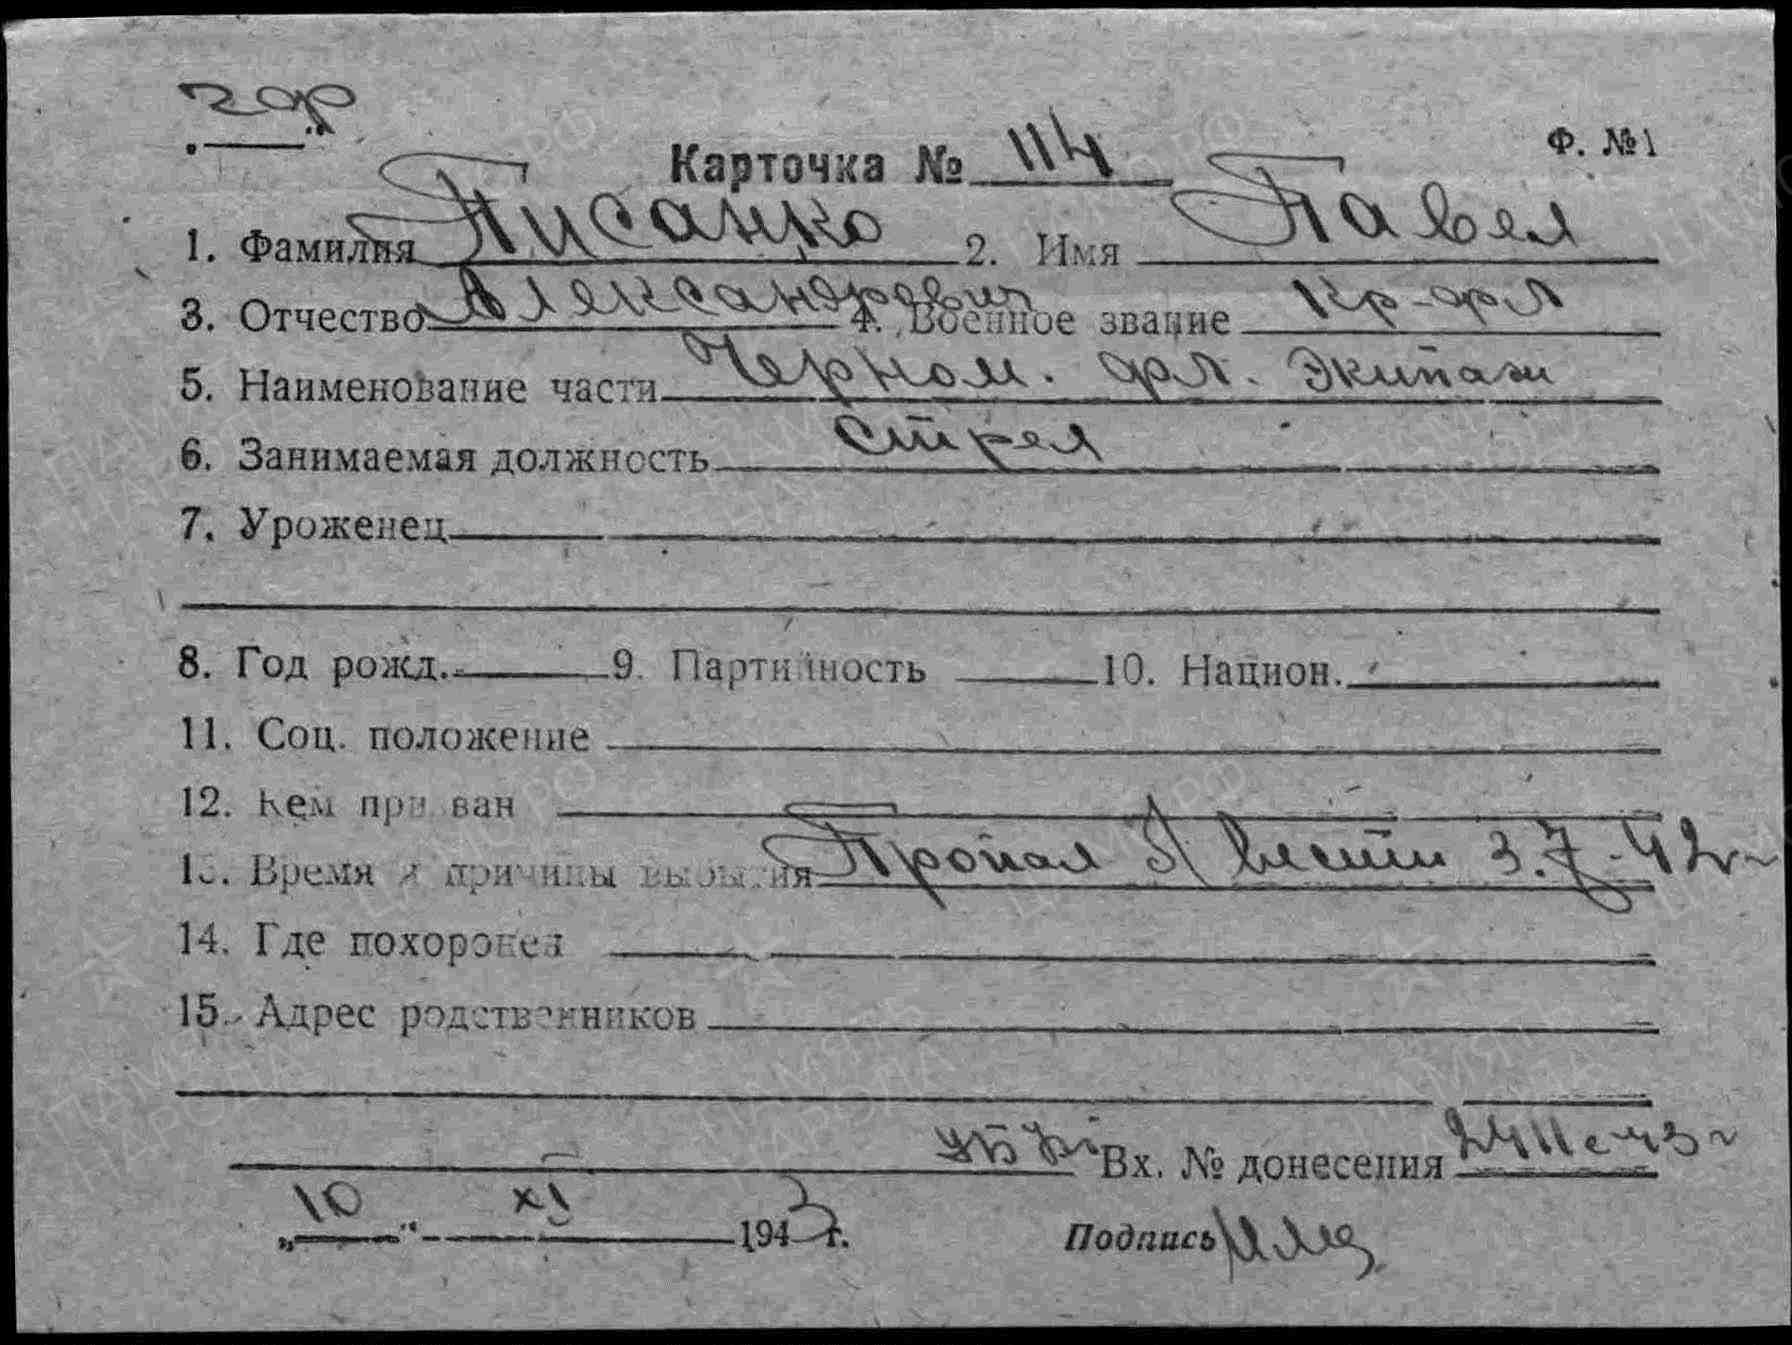 Ф. №1
Карточка № 114
1. Фамилия Писанко 2. Имя Павел
3. Отчество Александрович 4. Военное звание Кр-фл
5. Наименование части Черном. фл. Экипаж
6. Занимаемая должность Стрел
7. Уроженец
8. Год рожд. 9. Партийность 10. Национ.
11. Соц. положение
12. Кем призван
13. Время и причины выбытия Пропал б/вести 3.7-42г
14. Где похоронен
15. Адрес родственников
Вх. № донесения 2411с-43г
„10“ XI 1943 г. Подпись